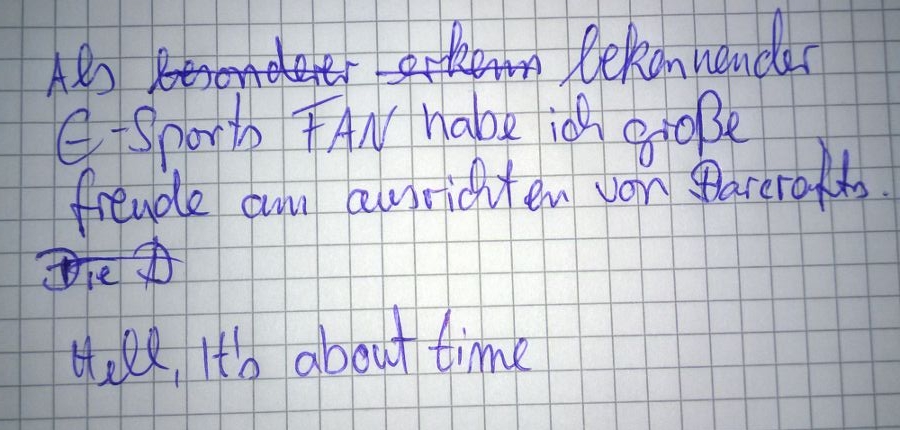 Als besonderer erkenn bekennender
E-Sports FAN habe ich große
freude am ausrichten von Barcrafts.
Die D
Hell, It's about time